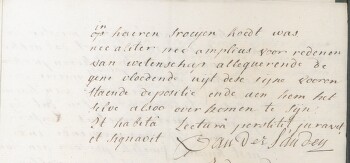 in
op haeren troeyen hoedt was
nec aliter nec amplius voor redenen
van wetenschap allequerende de
gene vloedende uijt dese sijne voeren
staende depositie ende aen hem het
selve alsoo overkomen te sijn
Et habitâ Lecturâ perstitit juravit
et signavit Van der Linden